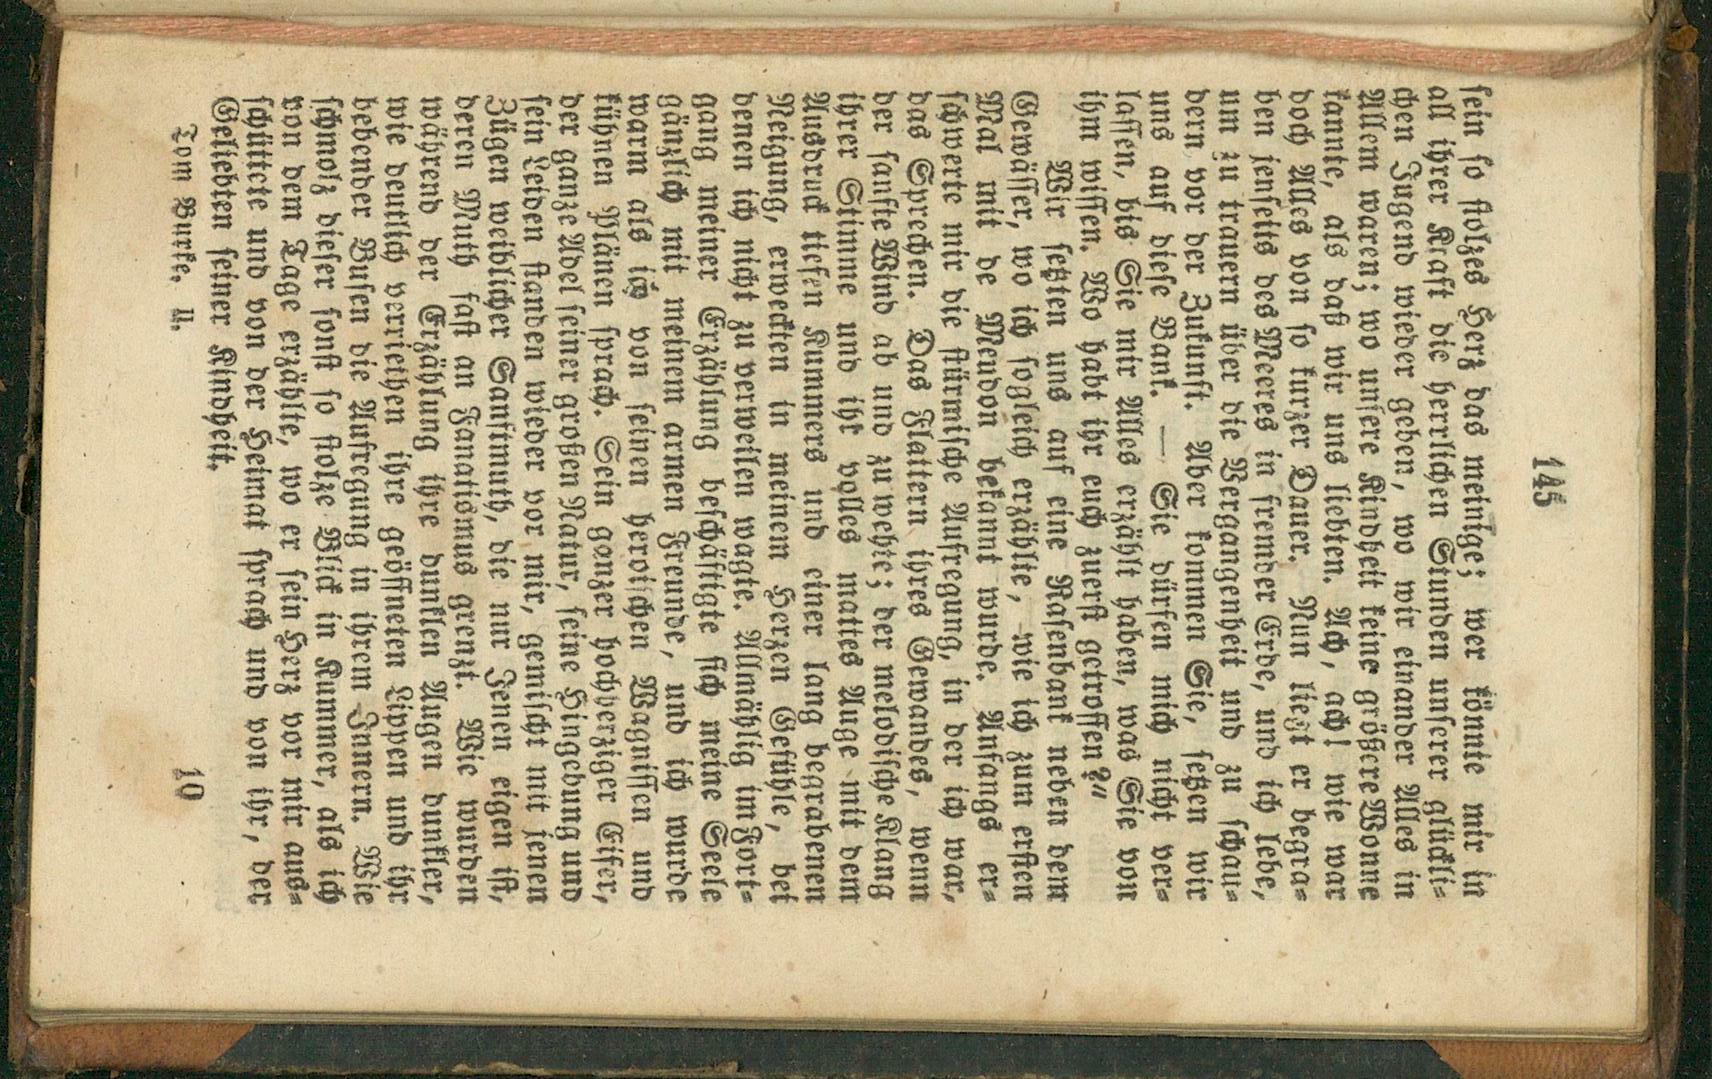 145
sein so stolzes Herz das meinige; wer könnte mir in
all ihrer Kraft die herrlichen Stunden unserer glückli-
chen Jugend wieder geben, wo wir einander Alles in
Allem waren; wo unsere Kindheit keine größere Wonne
kannte, als daß wir uns liebten. Ach, ach! wie war
doch Alles von so kurzer Dauer. Nun liegt er begra-
ben jenseits des Meeres in fremder Erde, und ich lebe,
um zu trauern über die Vergangenheit und zu schau-
dern vor der Zukunft. Aber kommen Sie, setzen wir
uns auf diese Bank. — Sie dürfen mich nicht ver-
lassen, bis Sie mir Alles erzählt haben, was Sie von
ihm wissen. Wo habt ihr euch zuerst getroffen?“
Wir setzten uns auf eine Rasenbank neben dem
Gewässer, wo ich sogleich erzählte, wie ich zum ersten
Mal mit de Meudon bekannt wurde. Anfangs er-
schwerte mir die stürmische Aufregung, in der ich war,
das Sprechen. Das Flattern ihres Gewandes, wenn
der sanfte Wind ab und zu wehte; der melodische Klang
ihrer Stimme und ihr volles mattes Auge mit dem
Ausdruck tiefen Kummers und einer lang begrabenen
Neigung, erweckten in meinem Herzen Gefühle, bei
denen ich nicht zu verweilen wagte. Allmählig im Fort-
gang meiner Erzählung beschäftigte sich meine Seele
gänzlich mit meinem armen Freunde, und ich wurde
warm als ich von seinen heroischen Wagnissen und
kühnen Plänen sprach. Sein ganzer hochherziger Eifer,
der ganze Adel seiner großen Natur, seine Hingebung und
sein Leiden standen wieder vor mir, gemischt mit jenen
Zügen weiblicher Sanftmuth, die nur Jenen eigen ist,
deren Muth fast an Fanatismus grenzt. Wie wurden
während der Erzählung ihre dunklen Augen dunkler,
wie deutlich verriethen ihre geöffneten Lippen und ihr
bebender Busen die Aufregung in ihrem Innern. Wie
schmolz dieser sonst so stolze Blick in Kummer, als ich
von dem Tage erzählte, wo er sein Herz vor mir aus-
schüttete und von der Heimat sprach und von ihr, der
Geliebten seiner Kindheit.
Tom Burke. II. 10